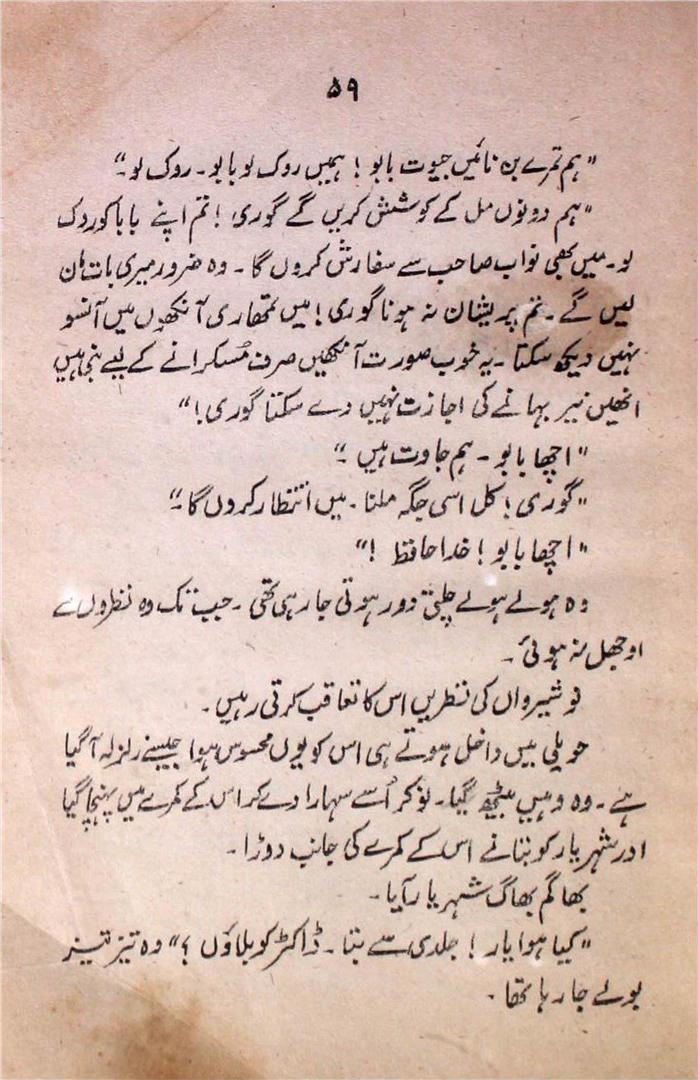 ۵۹
"ہم تمرے بن نائیں جیوت بابو! ہمیں روک لو بابو۔ روک لو۔"
"ہم دونوں مل کے کوشش کریں گے گوری! تم اپنے بابا کو روک
لو۔ میں بھی نواب صاحب سے سفارش کروں گا۔ وہ ضرور میری بات مان
لیں گے۔ تم پریشان نہ ہونا گوری! میں تمھاری آنکھوں میں آنسو
نہیں دیکھ سکتا۔ یہ خوب صورت آنکھیں صرف مُسکرانے کے لیے بنی ہیں
انھیں نیر بہانے کی اجازت نہیں دے سکتا گوری!"
"اچھا بابو۔ ہم جاوت ہیں۔"
"گوری! کل اسی جگہ ملنا۔ میں انتظار کروں گا۔"
"اچھا بابو! خدا حافظ!"
وہ ہولے ہولے چلتی دور ہوتی جا رہی تھی۔ جب تک وہ نظروں سے
اوجھل نہ ہوئی۔
نوشیرواں کی نظریں اس کا تعاقب کرتی رہیں۔
حویلی میں داخل ہوتے ہی اس کو یوں محسوس ہوا جیسے زلزلہ آ گیا
ہے۔ وہ وہیں بیٹھ گیا۔ نوکر اُسے سہارا دے کر اس کے کمرے میں پہنچا گیا
اور شہریار کو بتانے اس کے کمرے کی جانب دوڑا۔
بھاگم بھاگ شہریار آیا۔
"کیا ہوا یار! جلدی سے بتا۔ ڈاکٹر کو بلاؤں؟" وہ تیز تیز
بولے جا رہا تھا۔